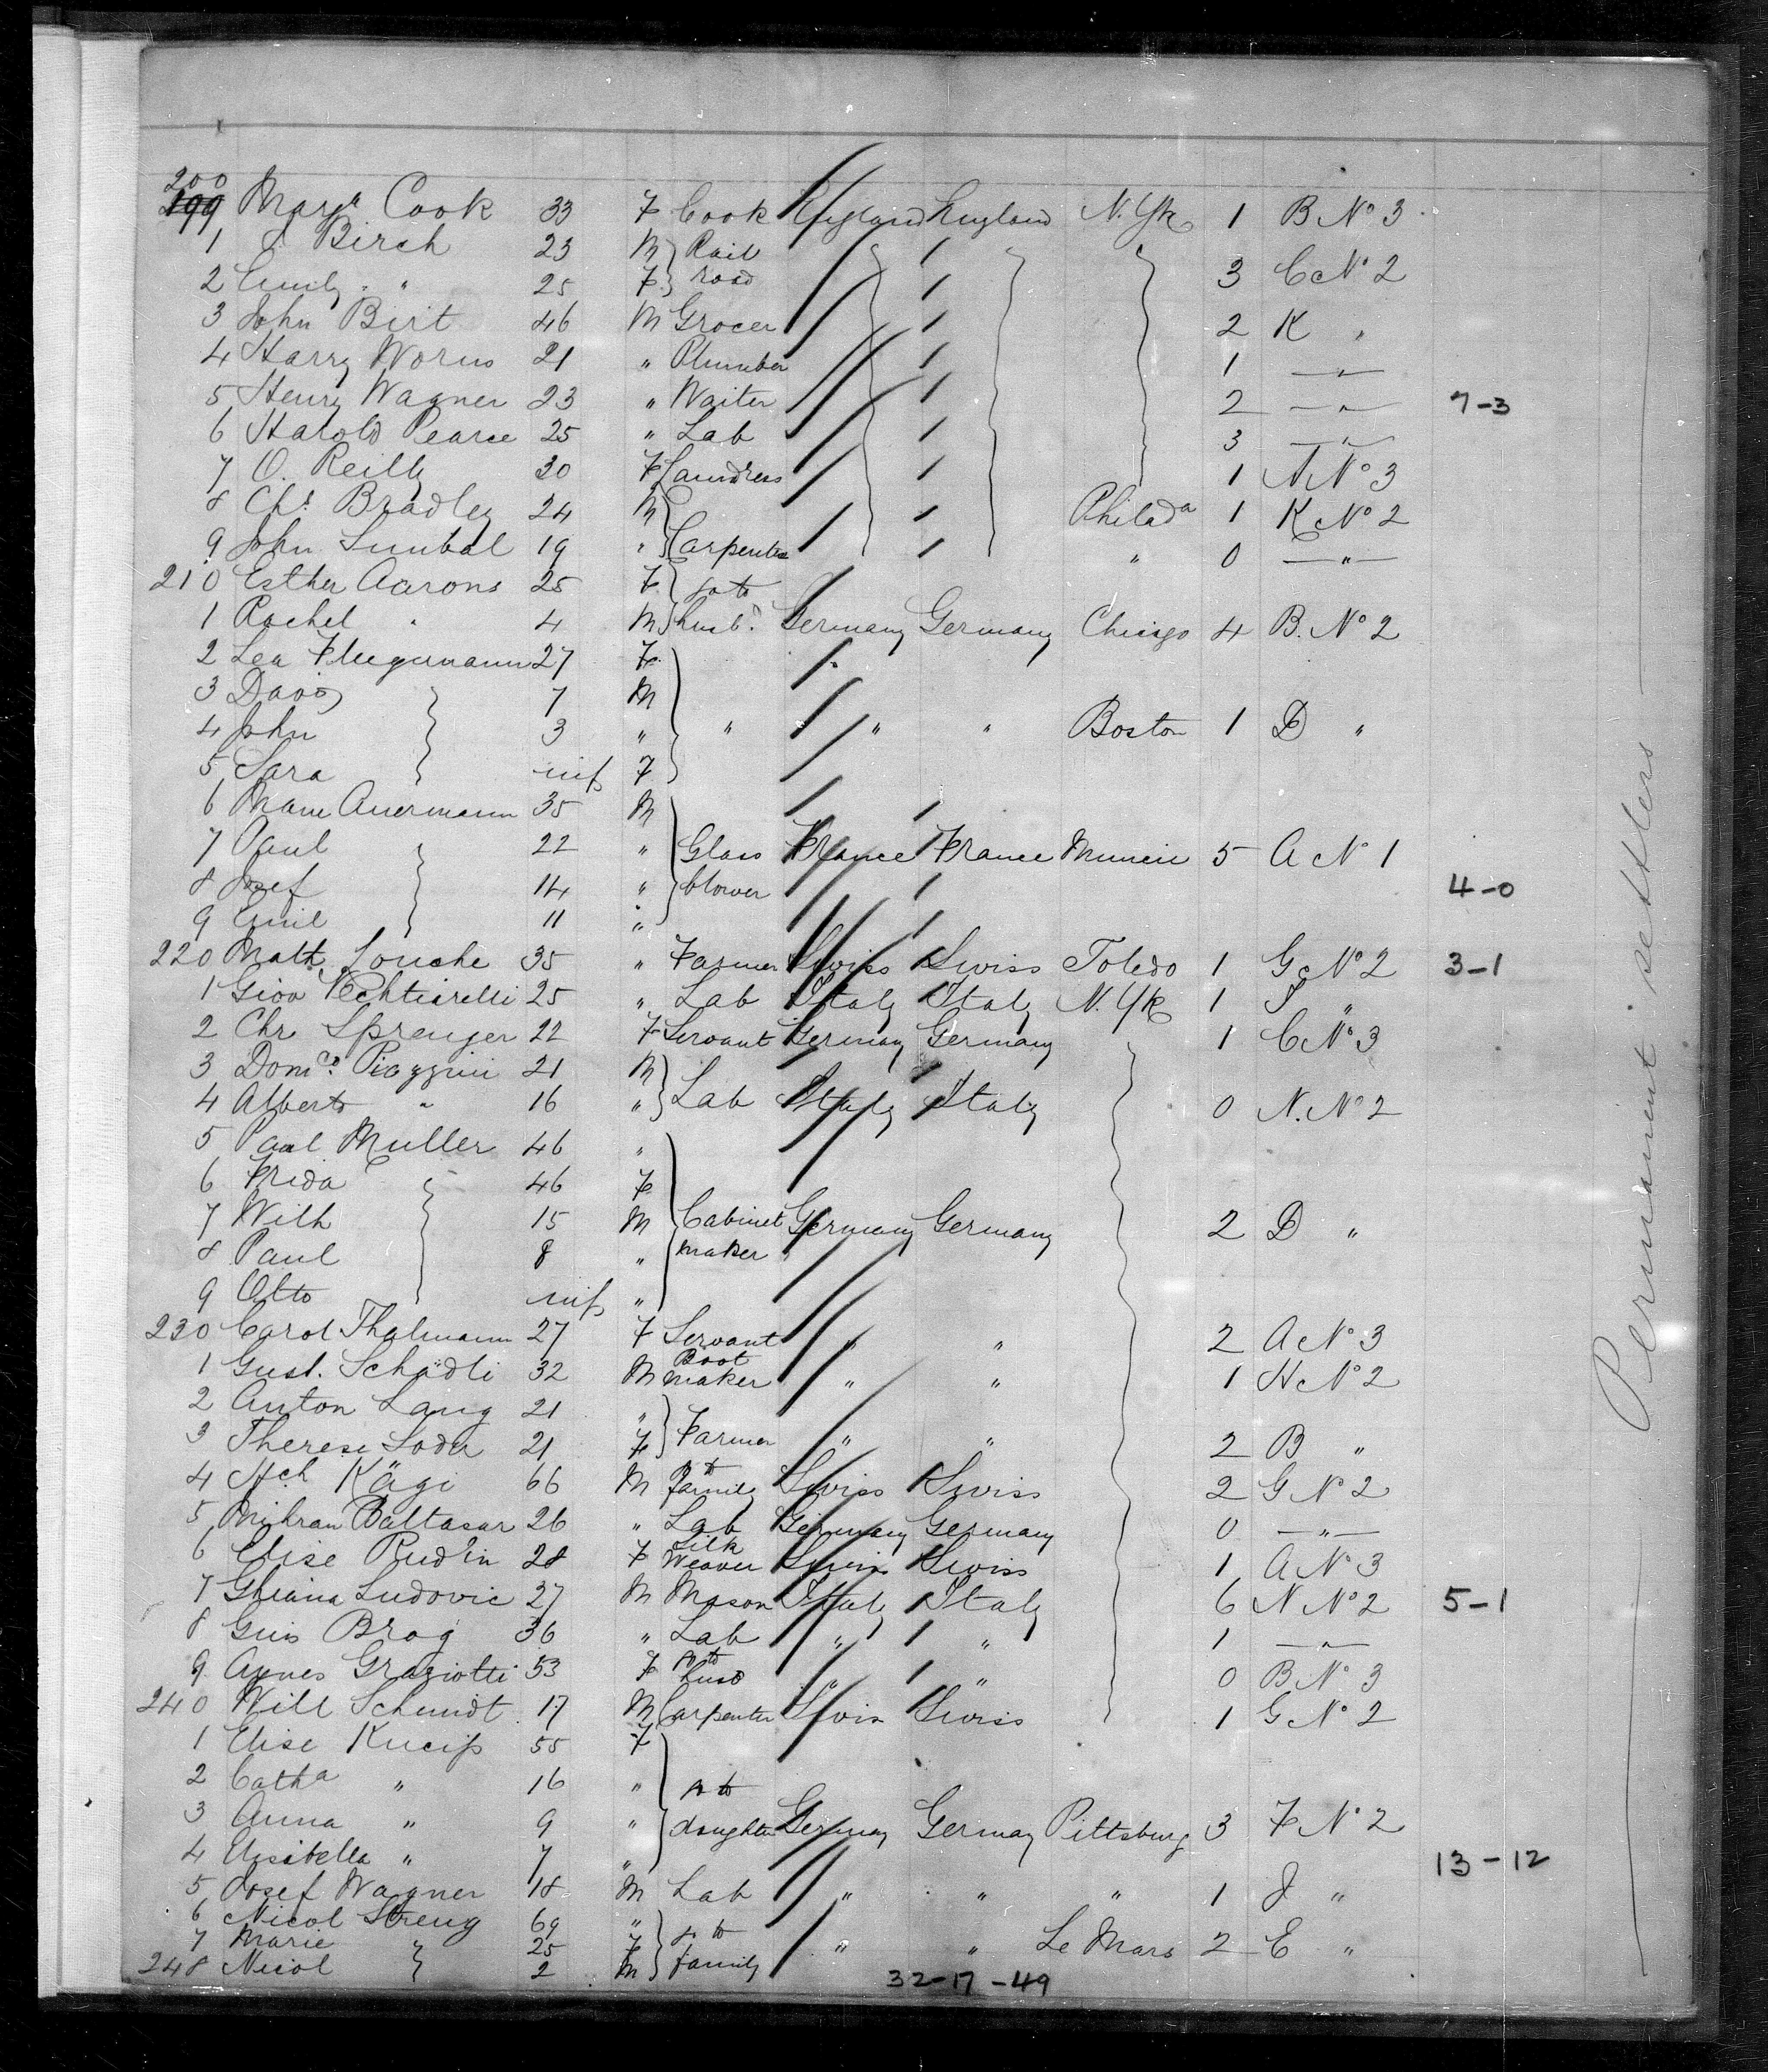 200
199 Marg't Cook 33 F Cook England England N. Yk 1 B No 3
1 J. Birch 23 M Rail
2 Emily " 25 F road 3 C No 2
3 John Birt 46 M Grocer 2 K "
4 Harry Worms 21 " Plumber 1 — " —
5 Henry Wagner 23 " Waiter 2 — " — 7-3
6 Harold Pearce 25 " Lab 3 — " —
7 O. Reilly 30 F Laundress 1 A No 3
8 Chs. Bradley 24 M Philada 1 K No 2
9 John Sumbal 19 " Carpenter " 0 — " —
210 Esther Aarons 25 F to
1 Rachel " 4 M husbd. Germany Germany Chicago 4 B. No 2
2 Lea 27 F
3 David 7 M
4 John 3 " " " " Boston 1 D "
5 Sara inf F
6 Auermann 35 M
7 Paul 22 " Glass France France Muncie 5 A No 1
8 Josef 14 " blower 4-0
9 Emil 11 "
220 Math. Louche 35 " Farmer Swiss Swiss Toledo 1 G No 2 3-1
1 Giov 25 " Lab Italy Italy N. Yk 1 "
2 Chr Sprenger 22 F Servant Germany Germany 1 C No 3
3 Domco. Piazzini 21 M
4 Alberto " 16 " Lab Italy Italy 0 N. No 2
5 Paul Muller 46 "
6 Frida 46 F
7 Wilh 15 M Cabinet Germany Germany 2 D "
8 Paul 8 " maker
9 Otto inf "
230 Carol Thalmann 27 F Servant " " 2 A No 3
Boot
1 Gust. Schädli 32 M maker " " 1 H No 2
2 Anton Lang 21 "
3 Therese Loder 21 F Farmer " " 2 B "
to
4 Hch Kägi 66 M family Swiss Swiss 2 G No 2
5 Mihran Baltasar 26 " Lab Germany Germany 0 — " —
Silk
6 Elise Rudin 28 F Weaver Swiss Swiss 1 A No 3
7 Ludovic 27 M Mason Italy Italy 6 N No 2 5-1
8 Brog 36 " Lab " " 1 — " —
to
9 Agnes Graziotti 53 F husb " " 0 B No 3
240 Will Schmidt 17 M Carpenter Swiss Swiss 1 G No 2
1 Elise Kneip 55 F
2 Catha " 16 " to
3 Anna " 9 " daughter Germany Germany Pittsburg 3 F No 2
4 Elisabella " 7 " 13-12
5 Josef Wagner 18 M Lab " " " 1 J "
6 Nicol Streng 69 " to
7 Marie 25 F " " Le Mars 2 E "
248 Nicol 2 M family
32-17-49
Permanent settlers